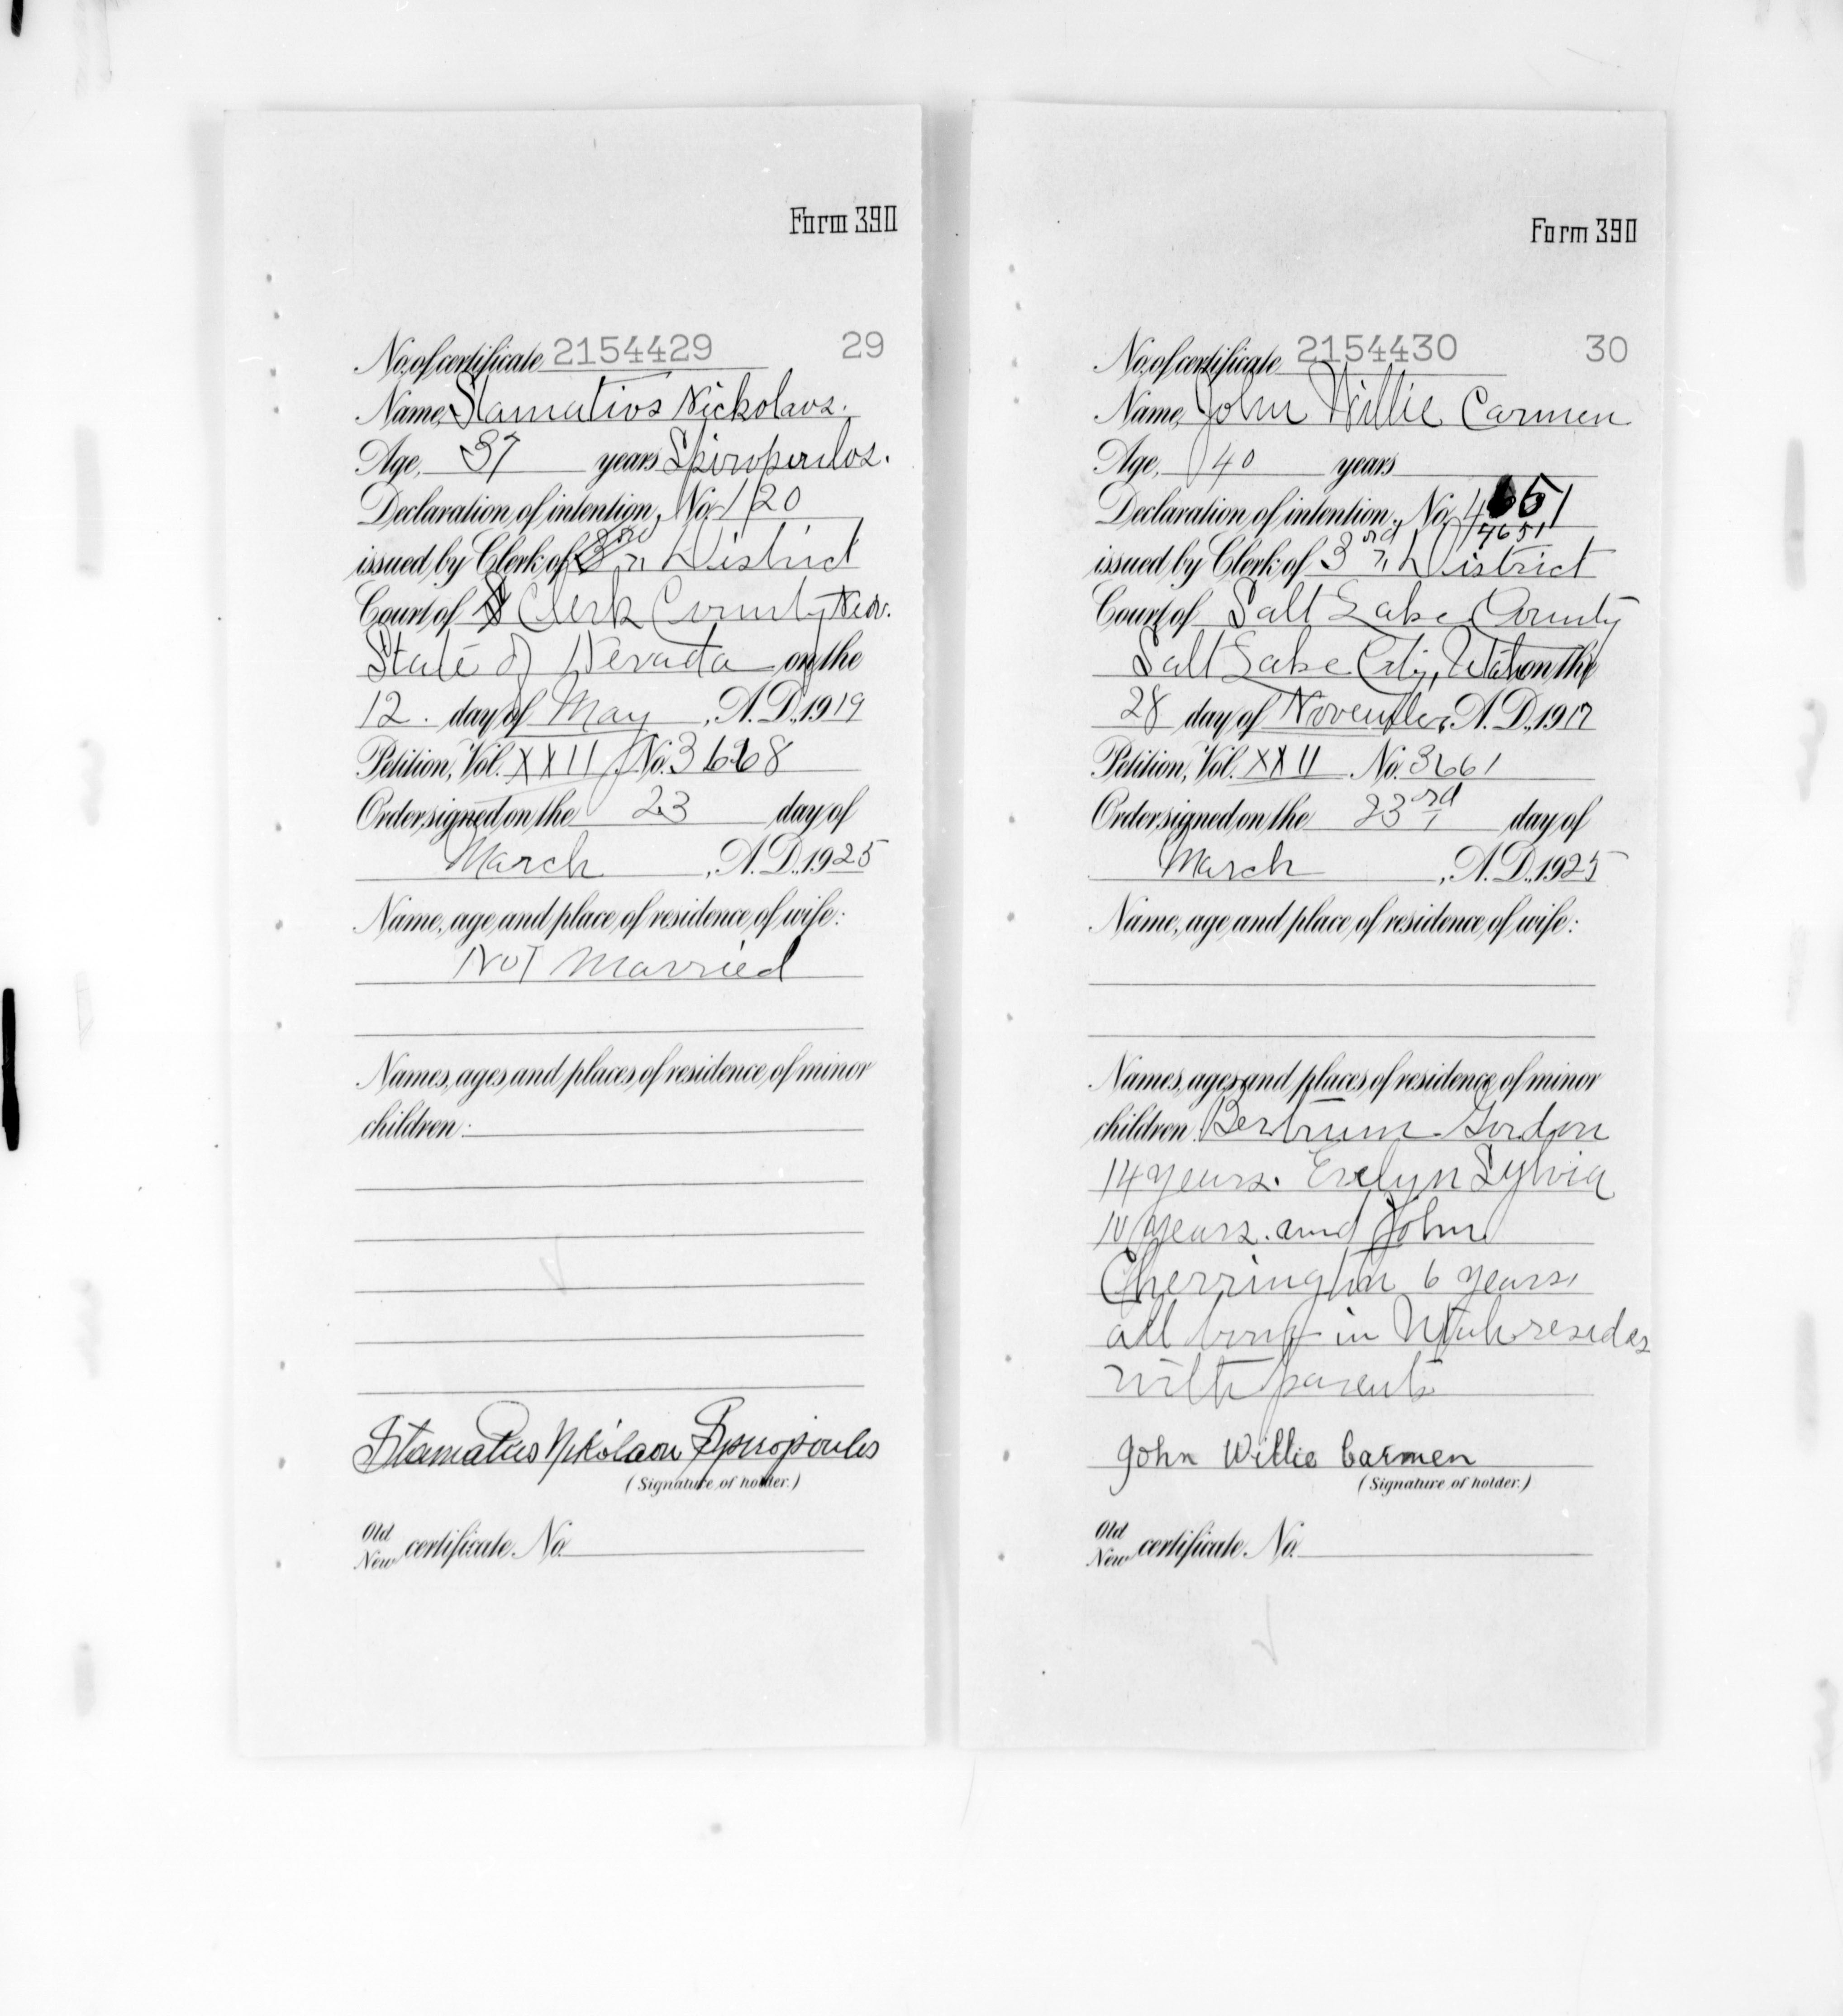 Form 390
No. of certificate 2154429 29
Name, Stamatios Nickolaos.
Age, 37 years Spiropoulos.
Declaration of intention, No. 120
issued by Clerk of District
Court of Clerk County Nev.
State of Nevada on the
12. day of May, A.D., 1919
Petition, Vol. XXII, No. 3668
Order signed on the 23 day of
March, A.D., 1925
Name, age and place of residence of wife:
Not Married
Names, ages and places of residence of minor
children:
Stamatios Nikolaou Spiropoulos
(Signature of holder.)
Old
New certificate No.
Form 390
No. of certificate 2154430 30
Name, John Willie Carmen
Age, 40 years
Declaration of intention, No. 4651
4651
issued by Clerk of 3rd District
Court of Salt Lake County
Salt Lake City, Utah on the
28 day of November, A.D., 1917
Petition, Vol. XXII No. 3661
Order signed on the 23rd day of
March, A.D., 1925
Name, age and place of residence of wife:
Names, ages and places of residence of minor
children: Bertrum Gordon
14 years. Evelyn Sylvia
10 years. and John
Cherrington 6 years
all born in Utah resides
with parents
John Willie Carmen
(Signature of holder.)
Old
New certificate No.